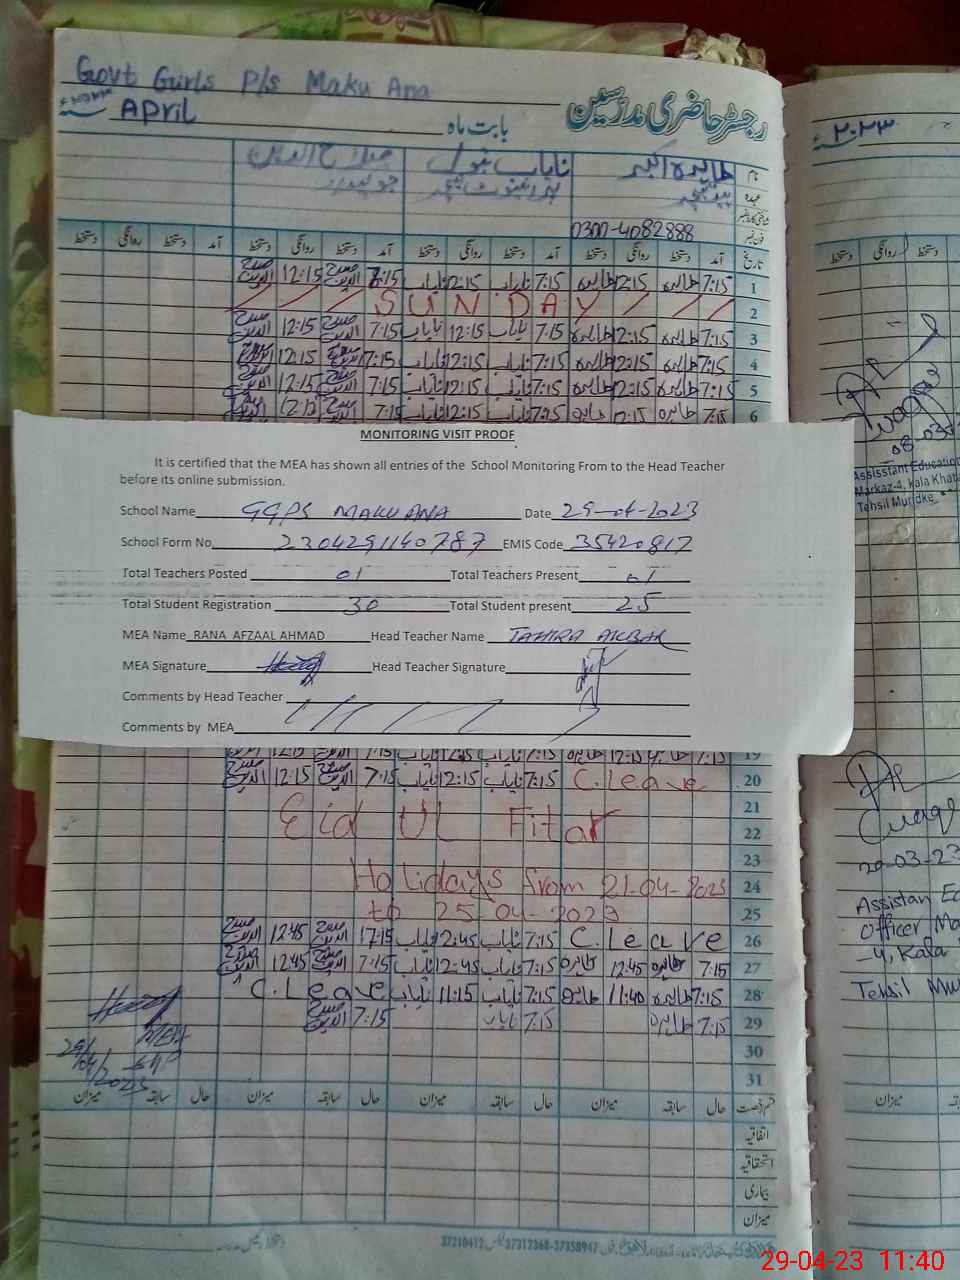 Govt Gurls P/s Maku Ana
رجسٹر حاضری مدرسین
بابت ماہ April
نام طاہرہ اکبر نایاب بتول صلاح الدین
عہدہ
فون نمبر 0300-4082888
تاریخ آمد دستخط روانگی دستخط آمد دستخط روانگی دستخط آمد دستخط روانگی دستخط آمد دستخط روانگی دستخط
1 7:15 طاہرہ 12:15 طاہرہ 7:15 نایاب 12:15 نایاب 7:15 صلاح الدین 12:15 صلاح الدین
2 SUNDAY
3 7:15 طاہرہ 12:15 طاہرہ 7:15 نایاب 12:15 نایاب 7:15 صلاح الدین 12:15 صلاح الدین
4 7:15 طاہرہ 12:15 طاہرہ 7:15 نایاب 12:15 نایاب 7:15 صلاح الدین 12:15 صلاح الدین
5 7:15 طاہرہ 12:15 طاہرہ 7:15 نایاب 12:15 نایاب 7:15 صلاح الدین 12:15 صلاح الدین
6 7:15 طاہرہ 12:15 طاہرہ 7:15 نایاب 12:15 نایاب 7:15
MONITORING VISIT PROOF
It is certified that the MEA has shown all entries of the School Monitoring From to the Head Teacher
before its online submission.
School Name GGPS MAKU ANA Date 29-04-2023
School Form No 2304291140787 EMIS Code 35420817
Total Teachers Posted 01 Total Teachers Present 01
Total Student Registration 30 Total Student present 25
MEA Name RANA AFZAAL AHMAD Head Teacher Name TAHIRA AKBAR
MEA Signature Head Teacher Signature
Comments by Head Teacher
Comments by MEA
19 7:15 طاہرہ 12:15 طاہرہ 7:15 نایاب 12:15 نایاب 7:15 12:15
20 C.leave 7:15 نایاب 12:15 نایاب 7:15 صلاح الدین 12:15 صلاح الدین
21
22 Eid UL Fitar
23
24 Holidays from 21-04-2023
25 to 25-04-2023
26 C.leave 7:15 نایاب 12:45 نایاب 7:15 صلاح الدین 12:45 صلاح الدین
27 7:15 طاہرہ 12:45 طاہرہ 7:15 نایاب 12:45 نایاب 7:15 صلاح الدین 12:45 صلاح الدین
28 7:15 طاہرہ 11:40 طاہرہ 7:15 نایاب 11:15 نایاب C.leave
29 7:15 طاہرہ 7:15 نایاب 7:15 صلاح الدین
30
31
MEA
29/04/2023
قسم رخصت حال سابقہ میزان حال سابقہ میزان حال سابقہ میزان حال سابقہ میزان
اتفاقیہ
استحقاقیہ
بیماری
میزان
37210412 37312368-37358947
۲۰۲۳
دستخط روانگی دستخط
Assisstant Education
Markaz-4, Kala Khat
Tehsil Muridke
20-03-23
Assistan Ed
officer Ma
-4, Kala
Tehsil Mu
میزان
29-04-23 11:40